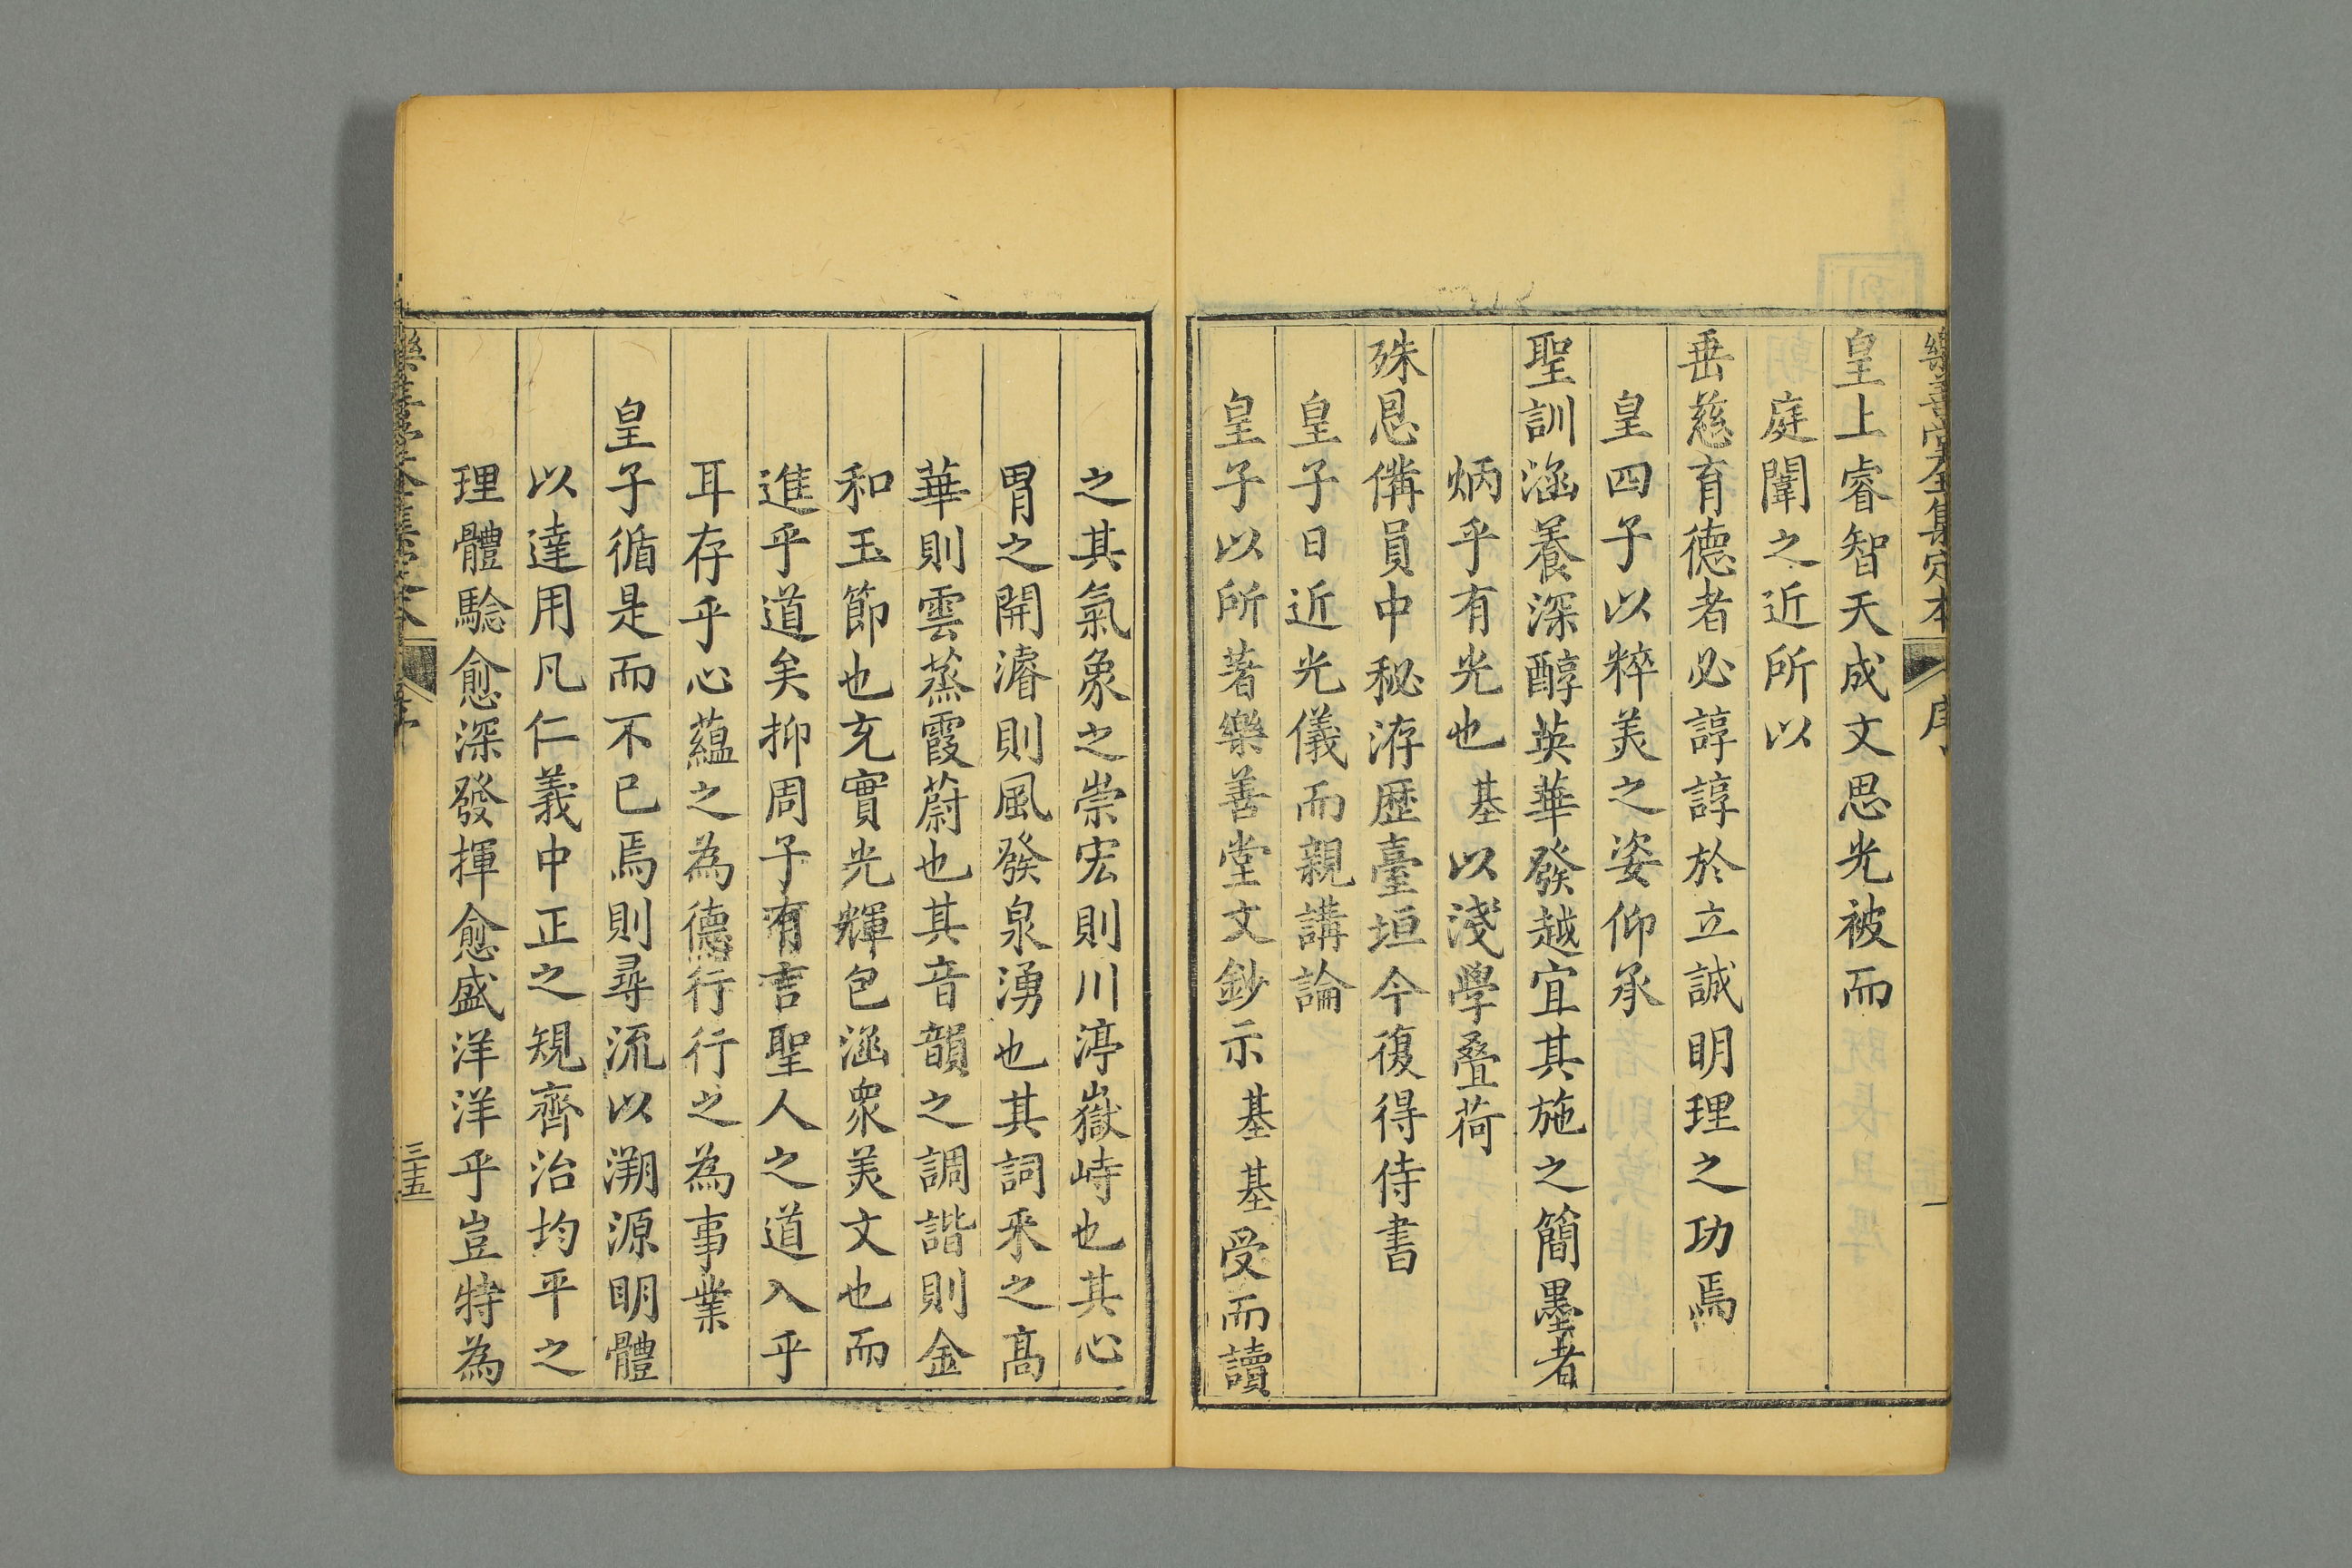 皇上睿智天成文思光被而
庭闈之近所以
垂慈育德者必諄諄於立誠明理之功焉
皇四子以粹美之姿仰承
聖訓涵養深醇英華發越宜其施之簡墨者
炳乎有光也基以淺學叠荷
殊恩備員中秘洊歷臺垣今復得侍書
皇子日近光儀而親講論
皇子以所著樂善堂文鈔示基基受而讀
之其氣象之崇宏則川渟嶽峙也其心
胃之開濬則風發泉湧也其詞采之高
華則雲蒸霞蔚也其音韻之調諧則金
和玉節也充實光輝包涵衆美文也而
進乎道矣抑周子有言聖人之道入乎
耳存乎心蘊之為德行行之為事業
皇子循是而不已焉則尋流以溯源明體
以達用凡仁義中正之規齊治均平之
理體驗愈深發揮愈盛洋洋乎豈特為
樂善堂全集定本
序
三十五